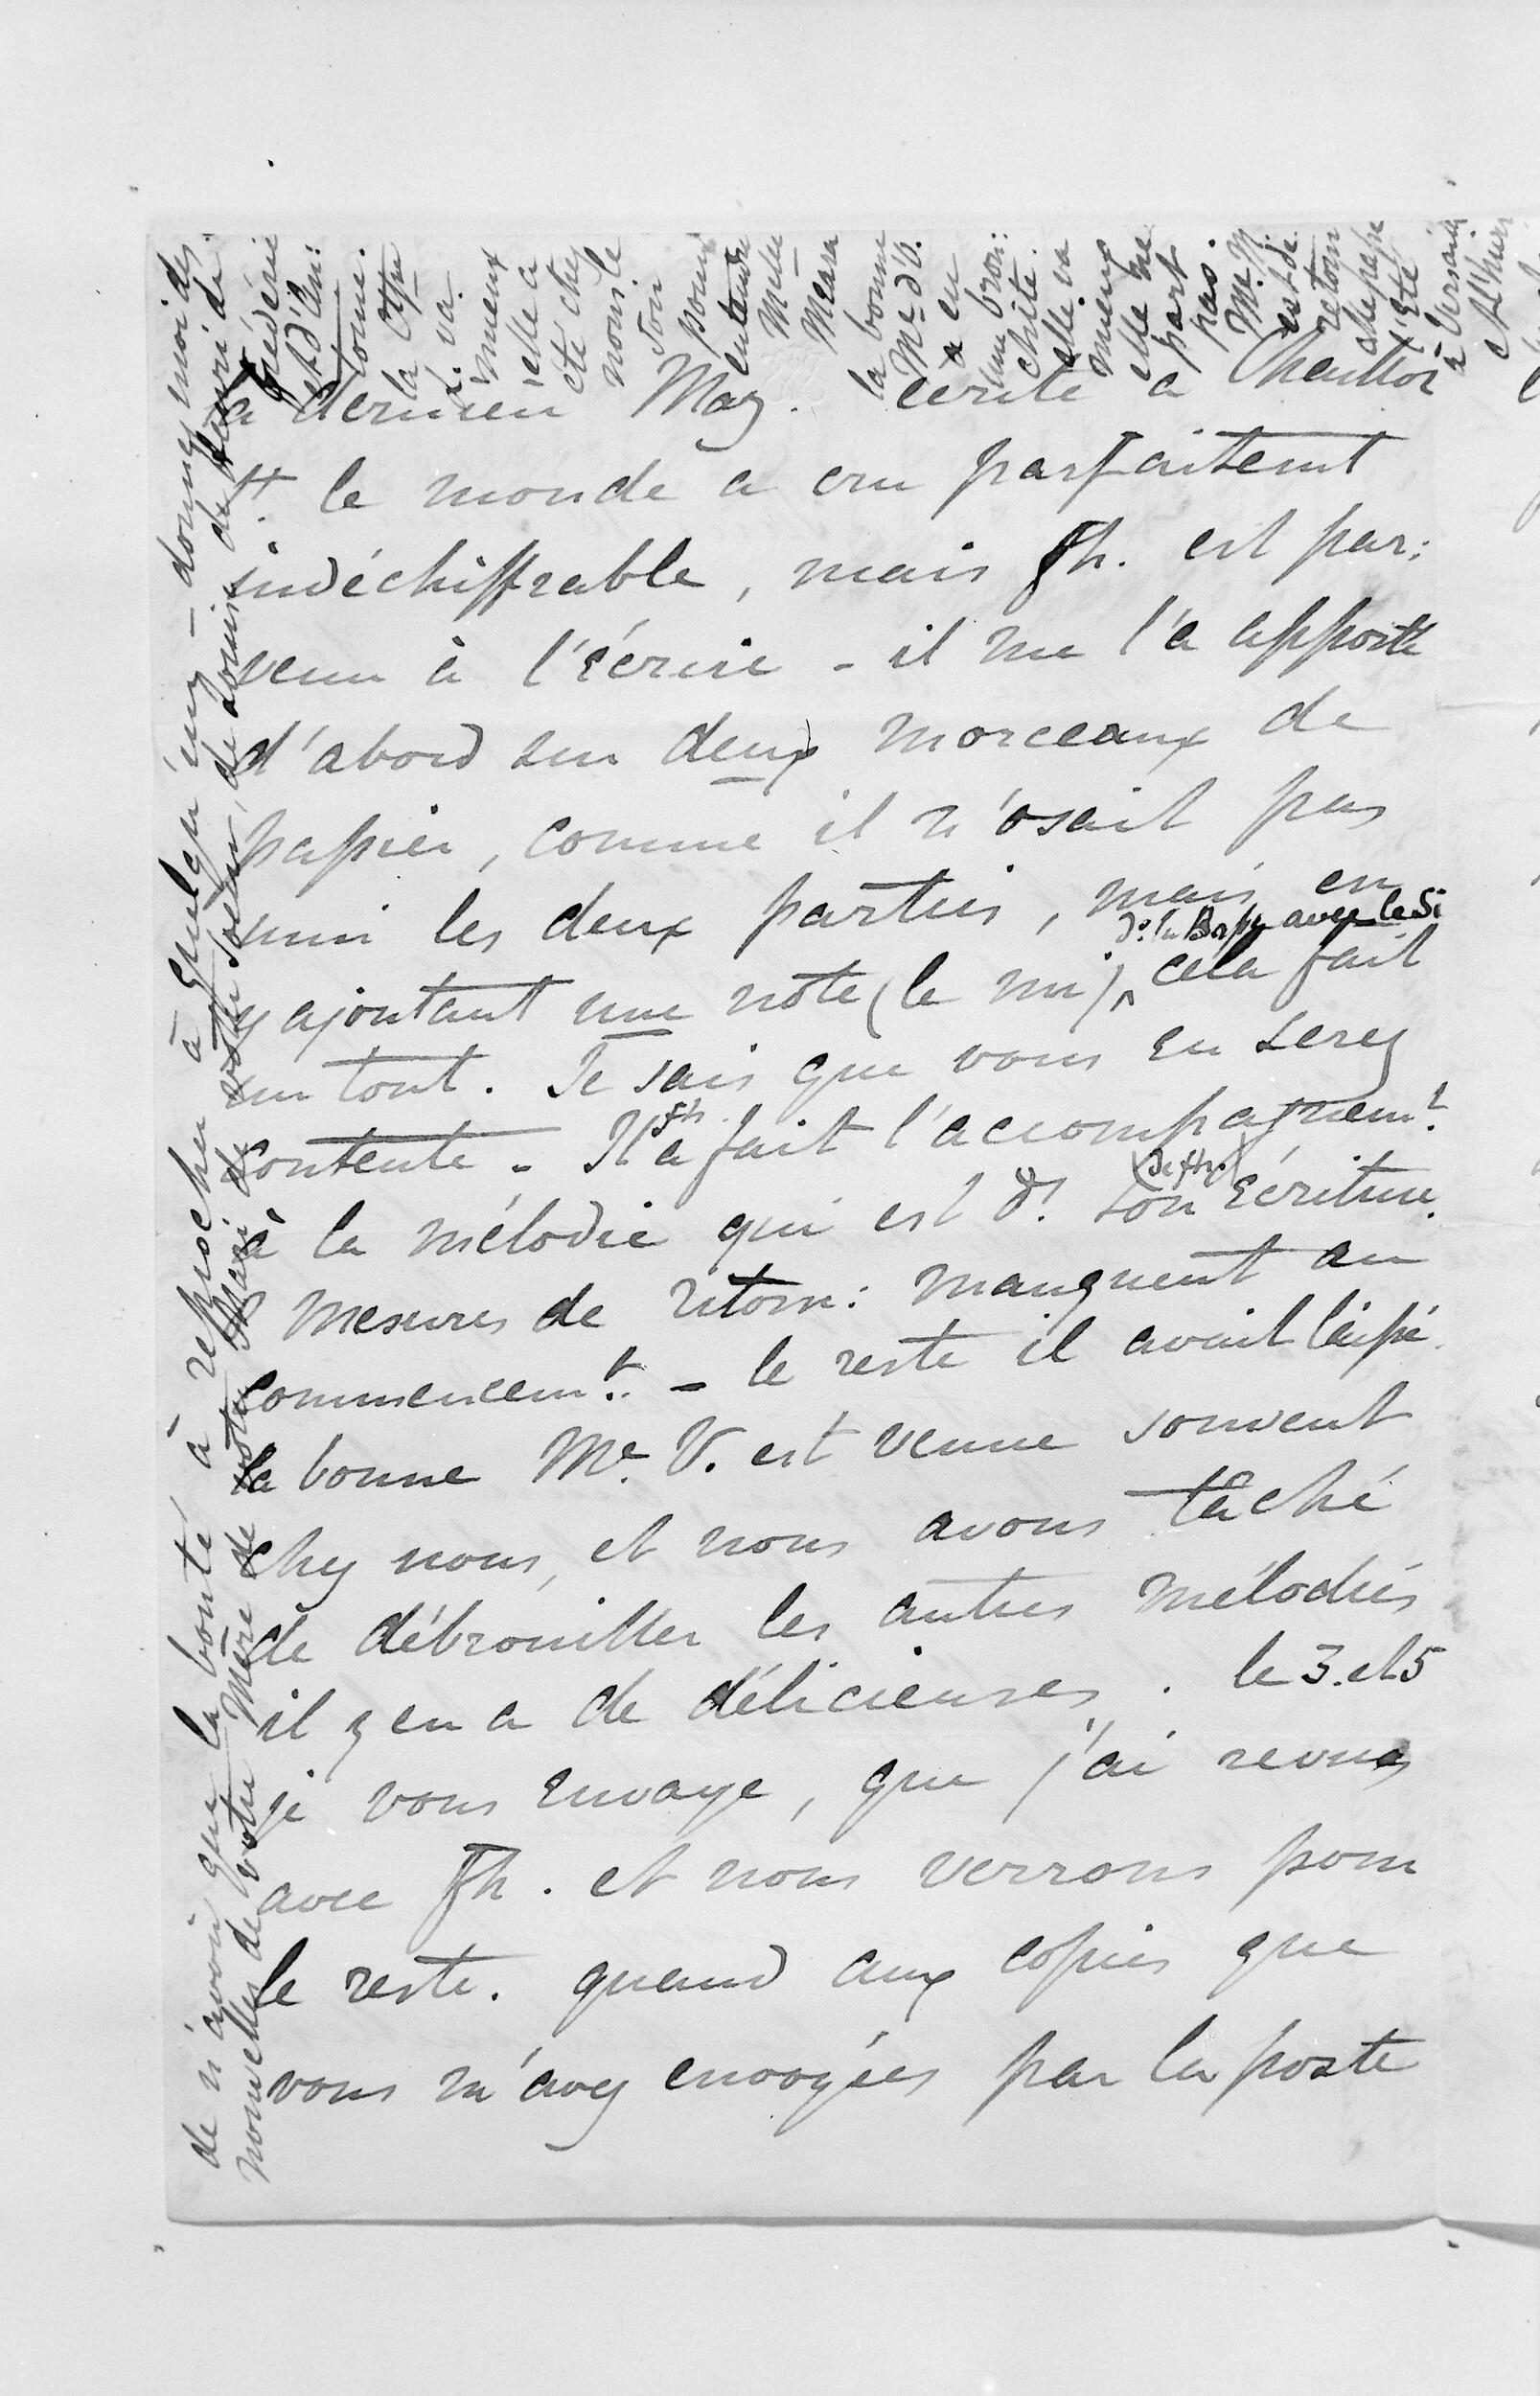 dernière Maz. écrite à Chaillot
tt le monde a cru parfaitemt
indéchiffrable, mais Fh. est par:
venu à l'écrire - il me l'a apporté
d'abord sur deux morceaux de
papier, comme il n'osait pas
unir les deux parties, mais en
ds. la Basse avec le Si
y ajoutant une note (le mi) cela fait
un tout. Je sais que vous en serez
contente - Il Fh. a fait l'accompagnemt.
à la mélodie qui est ds. son (de Fh.) écriture.
mesures de ritorn: manquent au
commencemt. - le reste il avait laissé.
la bonne Me. V. est venue souvent
chez nous, et nous avons tâché
de débrouiller les autres mélodies
il y en a de délicieuses. le 3. et 5
je vous envoye, que j'ai revues
avec Fh. et nous verrons pour
le reste. quand aux copies que
vous m'avez envoyées par la poste
de n'avoir que la bonté à reprocher à quelqu'un - donnez moi des
nouvelles de votre Mère de votre Mari de votre soeur, de Louise de Henri de
Frédéric
est d'An:
tome.
la Ctsse
d. va
mieux
elle a
été chez
nous le
soir
pour
entendre
Mlle
Meara
la bonne
Me. d'O.
a eu
une bron:
chite
elle va
mieux
elle ne
part
pas.
Me. M.
est de
retour
elle passe
l'Eté
à Versailles